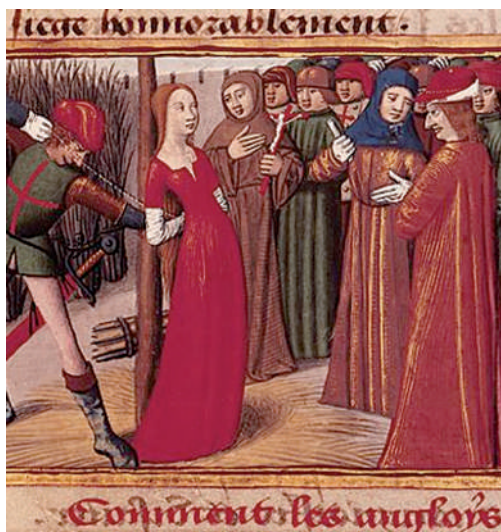 siege honnorablement.
Comment les angloys